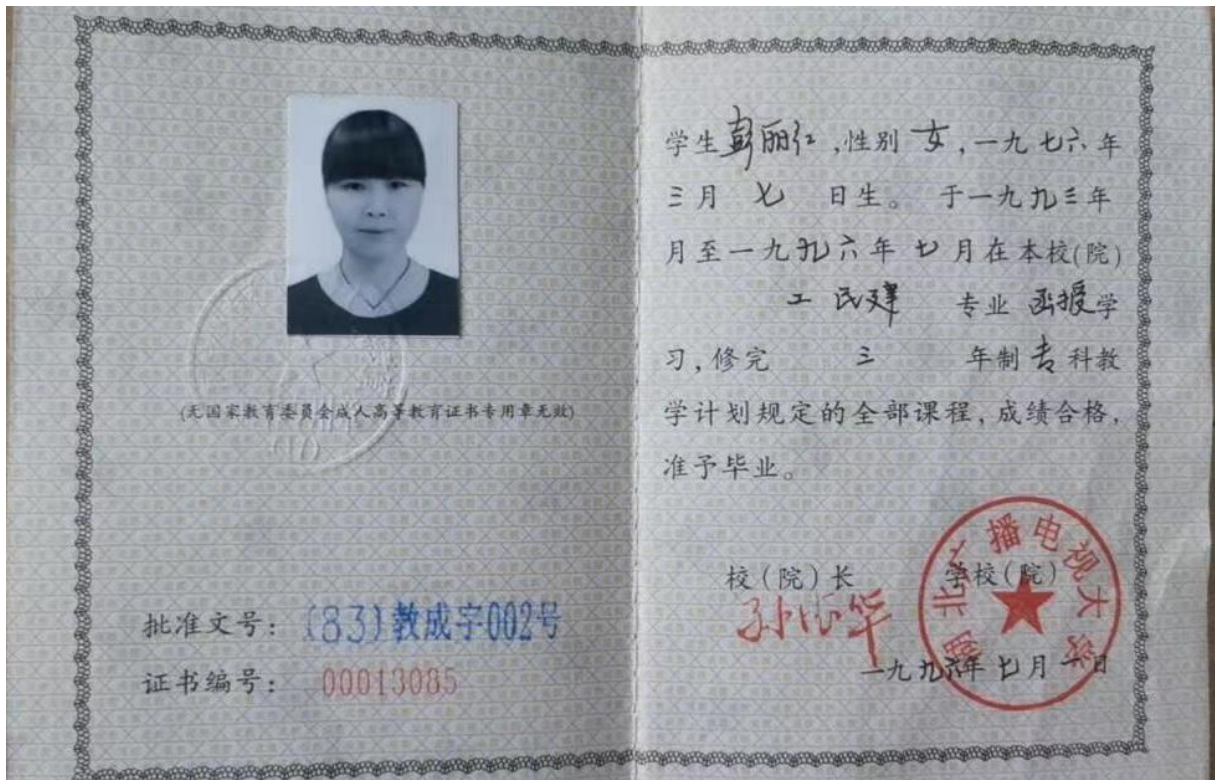 (无国家教育委员会成人高等教育证书专用章无效)
批准文号：(83)教成字002号
证书编号：00013085
学生彭丽红,性别 女,一九七六年
三月 七 日生。于一九九三年
月至一九九六年七月在本校(院)
工民建 专业 函授学
习,修完 三 年制 专科教
学计划规定的全部课程,成绩合格,
准予毕业。
校(院)长 学校(院)
湖北广播电视大学
一九九六年七月一日